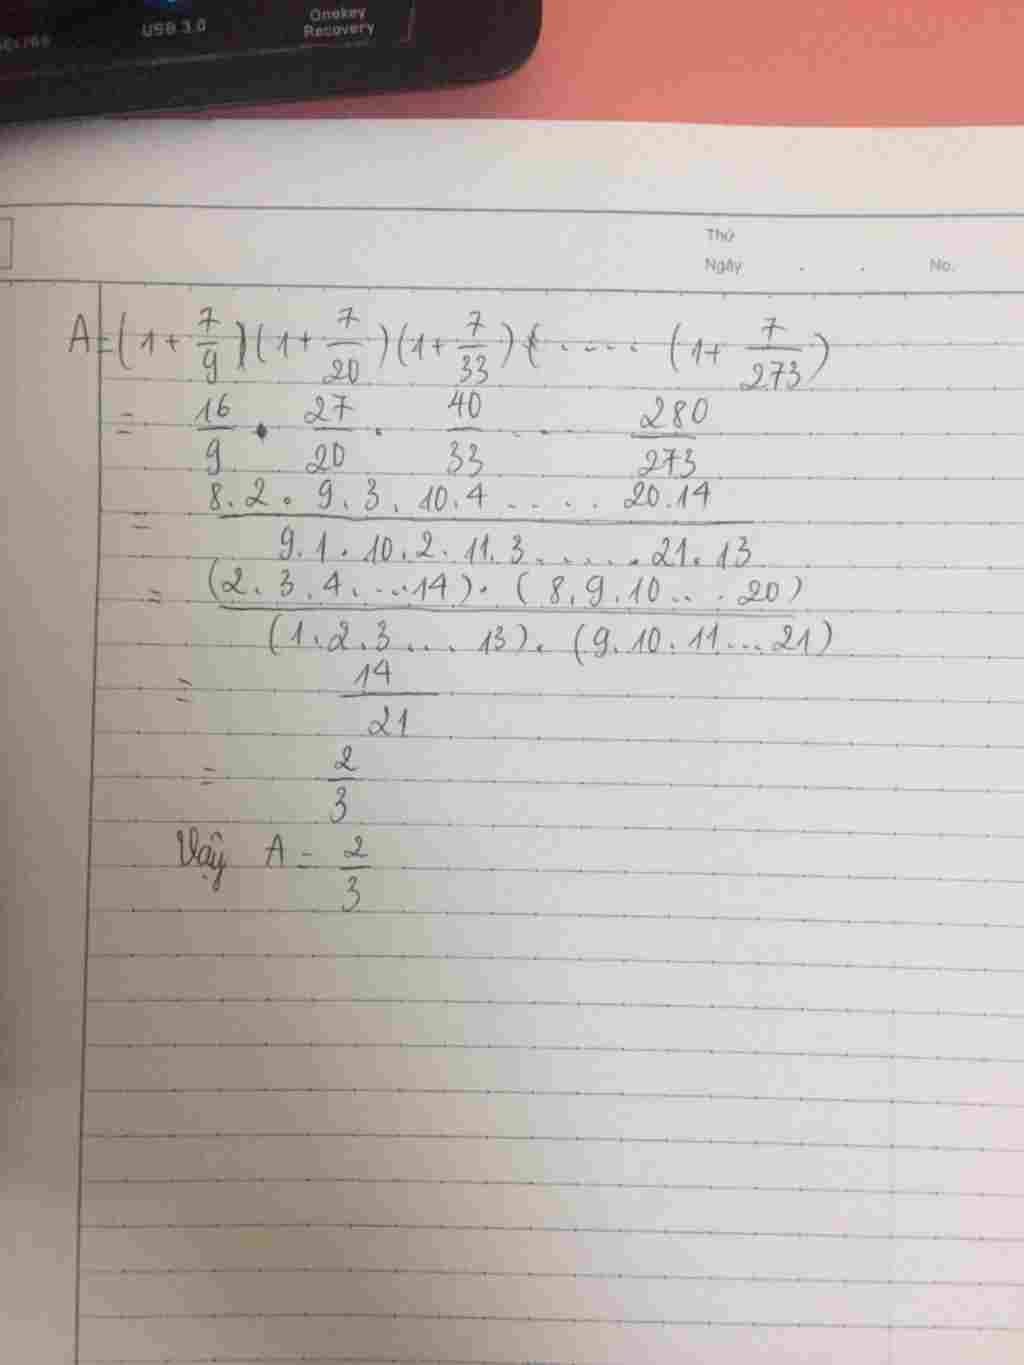 USB 3.0
Onekey
Recovery
Thứ
Ngày . . No.
A = (1 + 7/9)(1 + 7/20)(1 + 7/33)( ..... (1 + 7/273)
= 16/9 . 27/20 . 40/33 ... 280/273
= 8.2 . 9.3 . 10.4 ..... 20.14 / 9.1 . 10.2 . 11.3 ...... 21.13
= (2.3.4....14).(8.9.10...20) / (1.2.3...13).(9.10.11...21)
= 14/21
= 2/3
Vậy A = 2/3